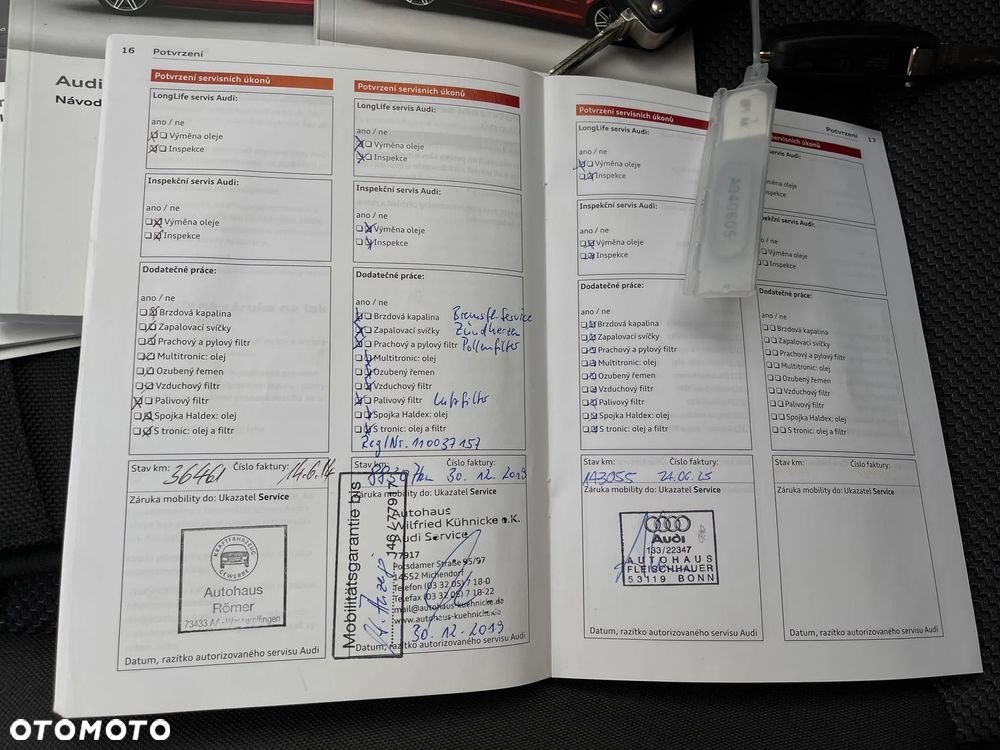 Audi
Návod
16 Potvrzení
Potvrzení servisních úkonů
LongLife servis Audi:
ano / ne
Výměna oleje
Inspekce
Inspekční servis Audi:
ano / ne
Výměna oleje
Inspekce
Dodatečné práce:
ano / ne
Brzdová kapalina
Zapalovací svíčky
Prachový a pylový filtr
Multitronic: olej
Ozubený řemen
Vzduchový filtr
Palivový filtr
Spojka Haldex: olej
S tronic: olej a filtr
Stav km: Číslo faktury:
36461 14.6.14
Záruka mobility do: Ukazatel Service
KRAFTFAHRZEUG
GEWERBE
Autohaus
Römer
73433 AA-Wasseralfingen
Datum, razítko autorizovaného servisu Audi
Potvrzení servisních úkonů
LongLife servis Audi:
ano / ne
Výměna oleje
Inspekce
Inspekční servis Audi:
ano / ne
Výměna oleje
Inspekce
Dodatečné práce:
ano / ne
Brzdová kapalina Bremsfl. Service
Zapalovací svíčky Zündkerzen
Prachový a pylový filtr Pollenfilter
Multitronic: olej
Ozubený řemen
Vzduchový filtr
Palivový filtr Luftfilter
Spojka Haldex: olej
S tronic: olej a filtr
Reg/Nr. 110037157
Stav km: Číslo faktury:
30. 12. 2019
Záruka mobility do: Ukazatel Service
Mobilitätsgarantie bis
Autohaus
Wilfried Kühnicke e.K.
Audi Service
77917
Potsdamer Straße 95/97
14552 Michendorf
Telefon (03 32 05) 7 18-0
Telefax (03 32 05) 7 18-22
mail@autohaus-kuehnicke.de
www.autohaus-kuehnicke.de
30. 12. 2019
Datum, razítko autorizovaného servisu Audi
Potvrzení servisních úkonů
LongLife servis Audi:
ano / ne
Výměna oleje
Inspekce
Inspekční servis Audi:
ano / ne
Výměna oleje
Inspekce
Dodatečné práce:
ano / ne
Brzdová kapalina
Zapalovací svíčky
Prachový a pylový filtr
Multitronic: olej
Ozubený řemen
Vzduchový filtr
Palivový filtr
Spojka Haldex: olej
S tronic: olej a filtr
Stav km: Číslo faktury:
143055 24.06.25
Záruka mobility do: Ukazatel Service
Audi
133/22347
AUTOHAUS
FLEISCHHAUER
53119 BONN
Datum, razítko autorizovaného servisu Audi
Potvrzení 17
servisních úkonů
servis Audi:
servis Audi:
ano / ne
Inspekce
Dodatečné práce:
ano / ne
Brzdová kapalina
Zapalovací svíčky
Prachový a pylový filtr
Multitronic: olej
Ozubený řemen
Vzduchový filtr
Palivový filtr
Spojka Haldex: olej
S tronic: olej a filtr
Stav km: Číslo faktury:
Záruka mobility do: Ukazatel Service
Datum, razítko autorizovaného servisu Audi
A040605
OTOMOTO